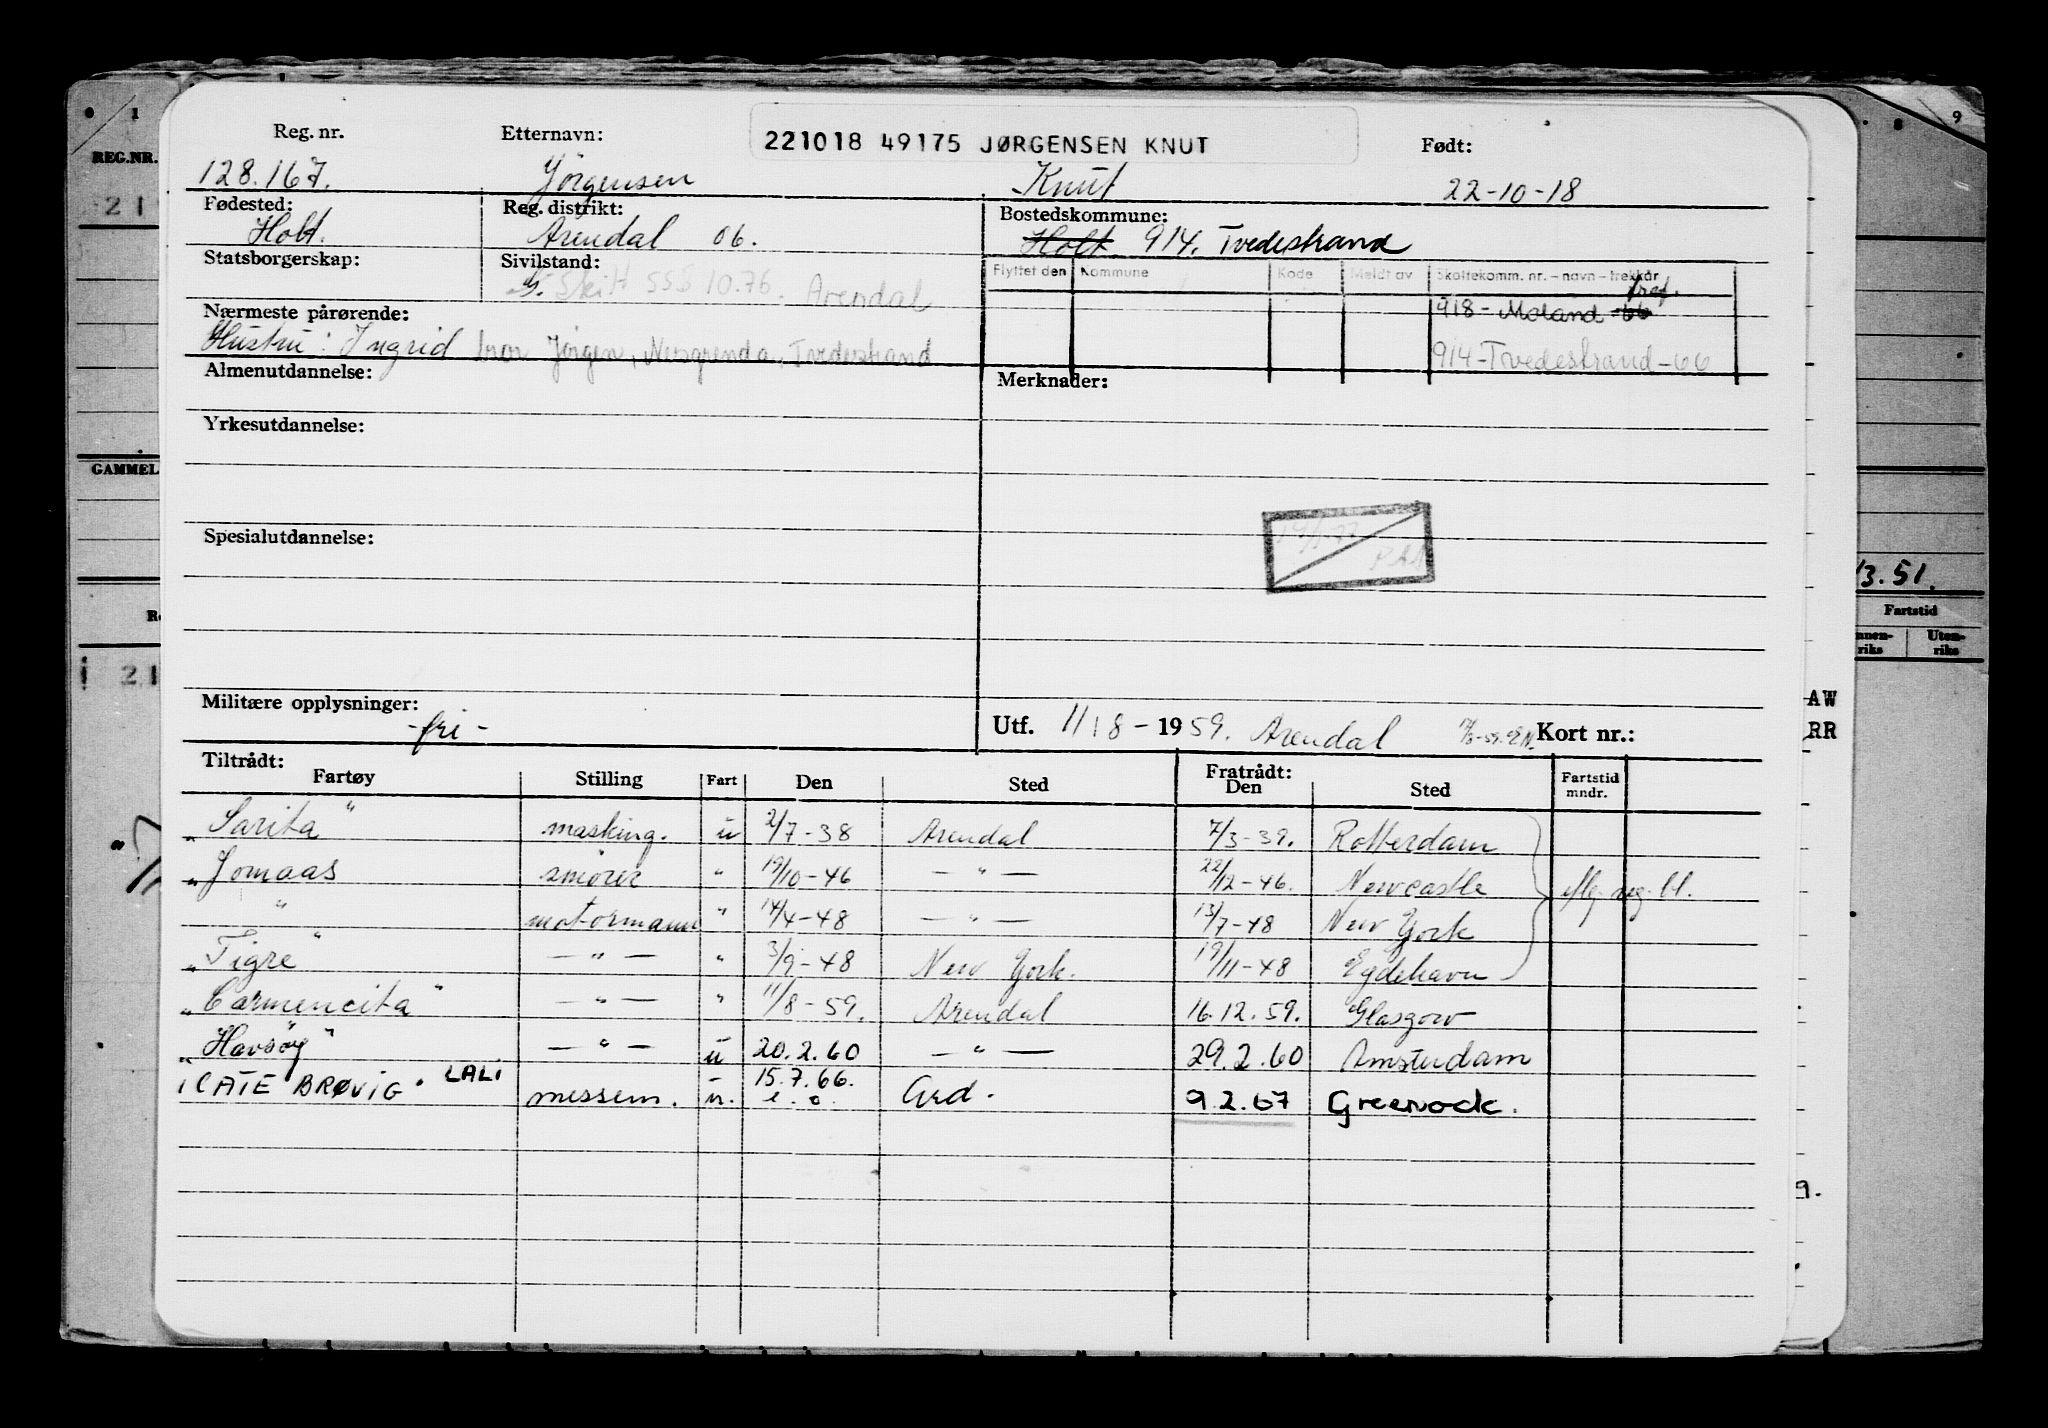 221018 49175 JØRGENSEN KNUT
Reg. nr. Etternavn: Født:
128.167. Jörgensen Knut 22-10-18
Fødested: Reg. distrikt: Bostedskommune:
Holt. Arendal 06. Holt 914. Tvedestrand
Statsborgerskap: Sivilstand: Flyttet den Kommune Kode Meldt av Skattekomm. nr. – navn – trekkår
G. Skilt 10.76. Arendal
918 - Moland - 66
Nærmeste pårørende:
Hustru: Ingrid bror Jörgen, Nesgrenda, Tvedestrand 914-Tvedestrand-66
Almenutdannelse: Merknader:
Yrkesutdannelse:
Spesialutdannelse:
Militære opplysninger:
-fri-
Utf. 11/8 - 1959. Arendal Kort nr.:
Tiltrådt: Fratrådt:
Fartøy Stilling Fart Den Sted Den Sted Fartstid mndr.
„Sarita" masking. u 2/7-38 Arendal 7/3-39. Rotterdam
„Jomaas smörer " 19/10-46 — " — 22/12-46. Newcastle
" motormann " 14/4-48 — " — 13/7-48 New York
„Tigre" — " — " 3/9-48 New York. 19/11-48 Eydehavn
„Carmencita" — " — " 11/8-59. Arendal 16.12.59. Glasgow
„Havsöy" — " — u 20.2.60 — " — 29.2.60 Amsterdam
"CATE BRØVIG" LALI messem. u. 15.7.66. e.o. Ard. 9.2.67 Greenock.
REG.NR.
GAMMEL
1
8 9
21
3.51.
Fartstid
Uten-
riks
21
AW
RR
9.